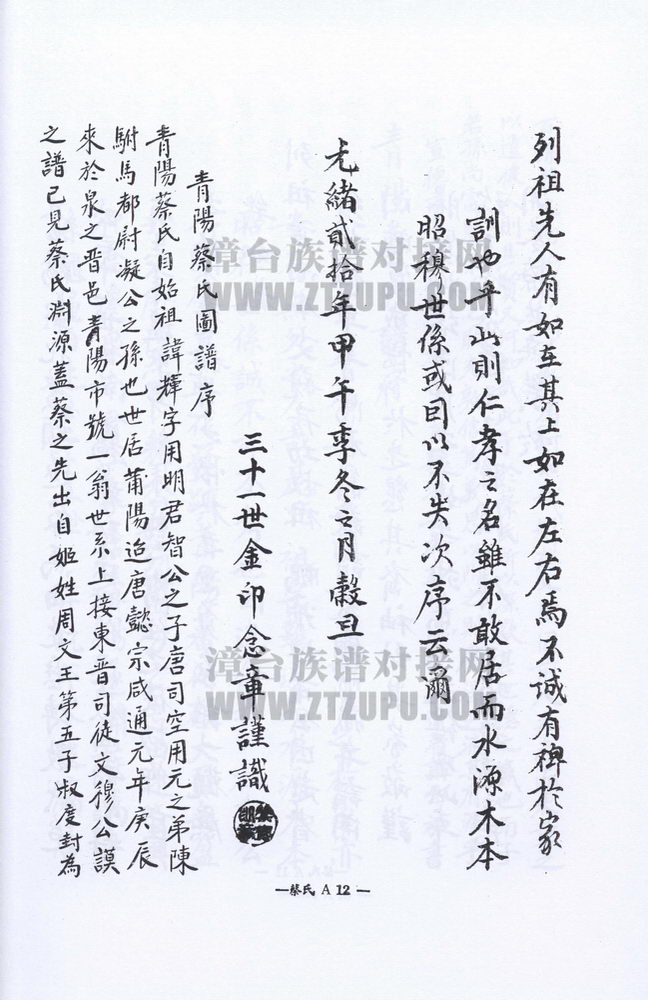 列祖先人有如在其上如在左右焉不誠有裨於家
訓也乎此則仁孝之名雖不敢居而水源木本
昭穆世係或曰以不失次序云爾
光緒貳拾年甲午季冬之月穀旦
三十一世金印念章謹識
青陽蔡氏圖譜序
青陽蔡氏自始祖諱輝字用明君智公之子唐司空用元之弟陳
駙馬都尉凝公之孫也世居莆陽迨唐懿宗咸通元年庚辰
來於泉之晋邑青陽市號一翁世系上接東晋司徒文穆公謨
之譜已見蔡氏淵源蓋蔡之先出自姬姓周文王第五子叔度封為
—蔡氏 A 12 —
漳台族谱对接网
WWW.ZTZUPU.COM
漳台族谱对接网
WWW.ZTZUPU.COM